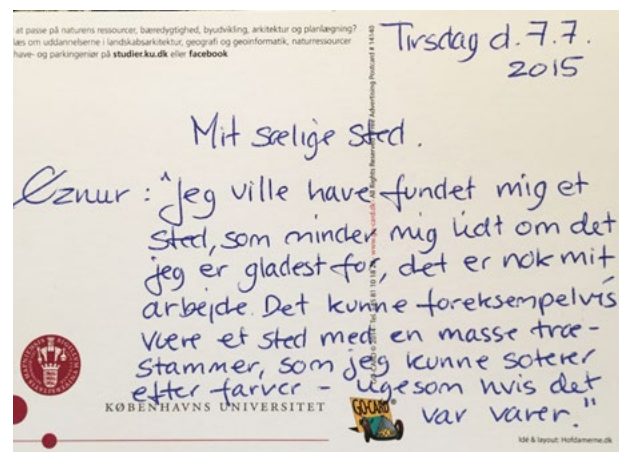 at passe på naturens ressourcer, bæredygtighed, byudvikling, arkitektur og planlægning?
læs om uddannelserne i landskabsarkitektur, geografi og geoinformatik, naturressourcer
have- og parkingeniør på studier.ku.dk eller facebook
Tirsdag d. 7.7.
2015
Mit sælige sted.
Öznur: "Jeg ville have fundet mig et
sted, som minder mig lidt om det
jeg er gladest for, det er nok mit
arbejde. Det kunne foreksempelvis
være et sted med en masse træ-
stammer, som jeg kunne soterer
efter farver - ligesom hvis det
var varer."
KØBENHAVNS UNIVERSITET
GO-CARD
Idé & layout: Hofdamerne.dk
Free Advertising Postcard # 14140
All Rights Reserved